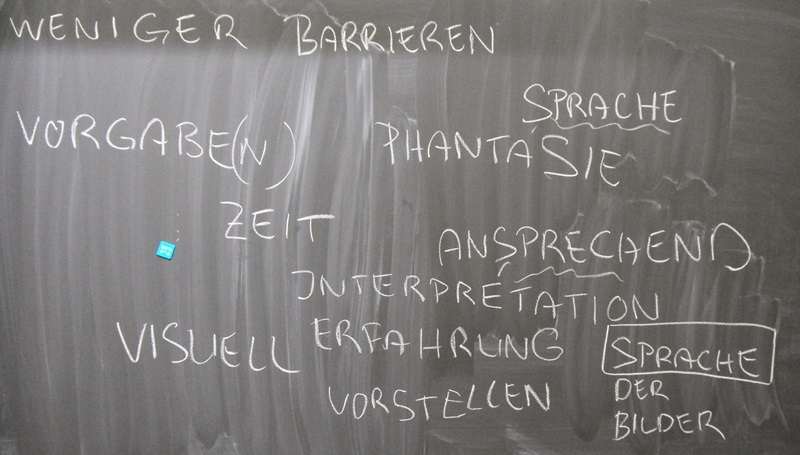 WENIGER BARRIEREN
SPRACHE
VORGABE(N) PHANTASIE
ZEIT
ANSPRECHEND
INTERPRETATION
VISUELL ERFAHRUNG
SPRACHE
DER
VORSTELLEN
BILDER